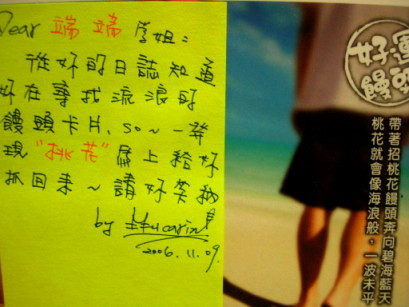 Dear 端端 学姐：
從妳的日誌知道
妳在尋找流浪的
饅頭卡片, so~一發
現"桃花"馬上給妳
抓回來~請妳笑納
by
2006.11.09.
好運
饅頭
帶著招桃花饅頭奔向碧海藍天
桃花就會像海浪般，一波未平